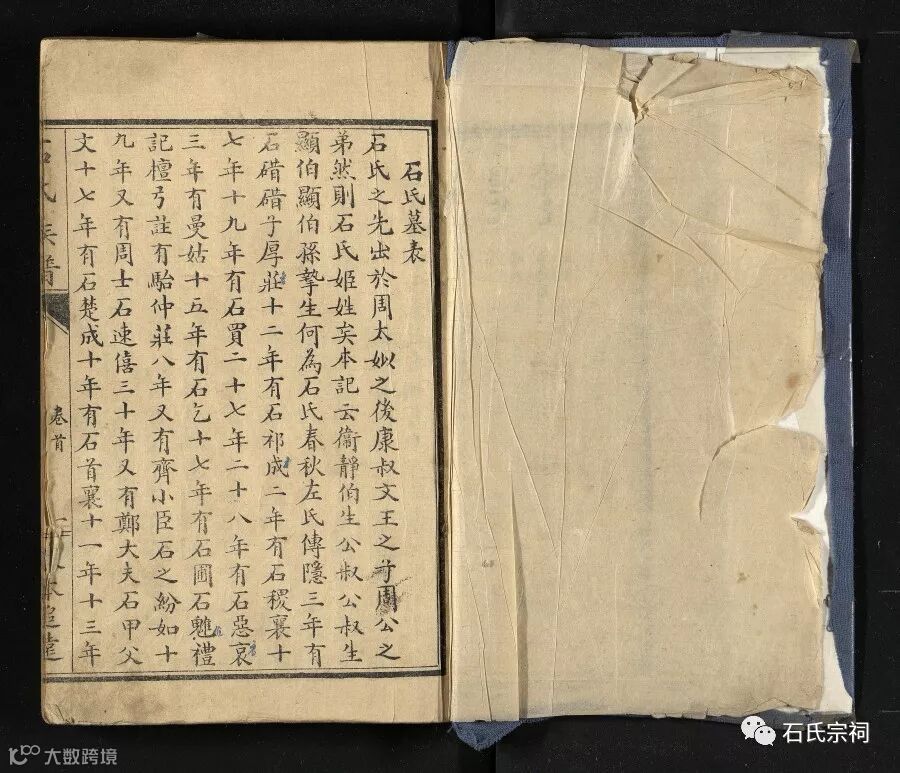 石氏墓表
石氏之先出於周太姒之後康叔文王之子周公之
弟然則石氏姬姓矣本記云衞靜伯生公叔公叔生
顯伯顯伯孫摯生何為石氏春秋左氏傳隱三年有
石碏碏子厚莊十二年有石祁成二年有石稷襄十
七年十九年有石買二十七年二十八年有石惡哀
三年有曼姑十五年有石乞十七年有石圃石魋禮
記檀弓註有駘仲莊八年又有齊小臣石之紛如十
九年又有周士石速僖三十年又有鄭大夫石甲父
文十七年有石楚成十年有石首襄十一年十三年
石氏族譜
卷首
追遠
石氏宗祠
大数跨境